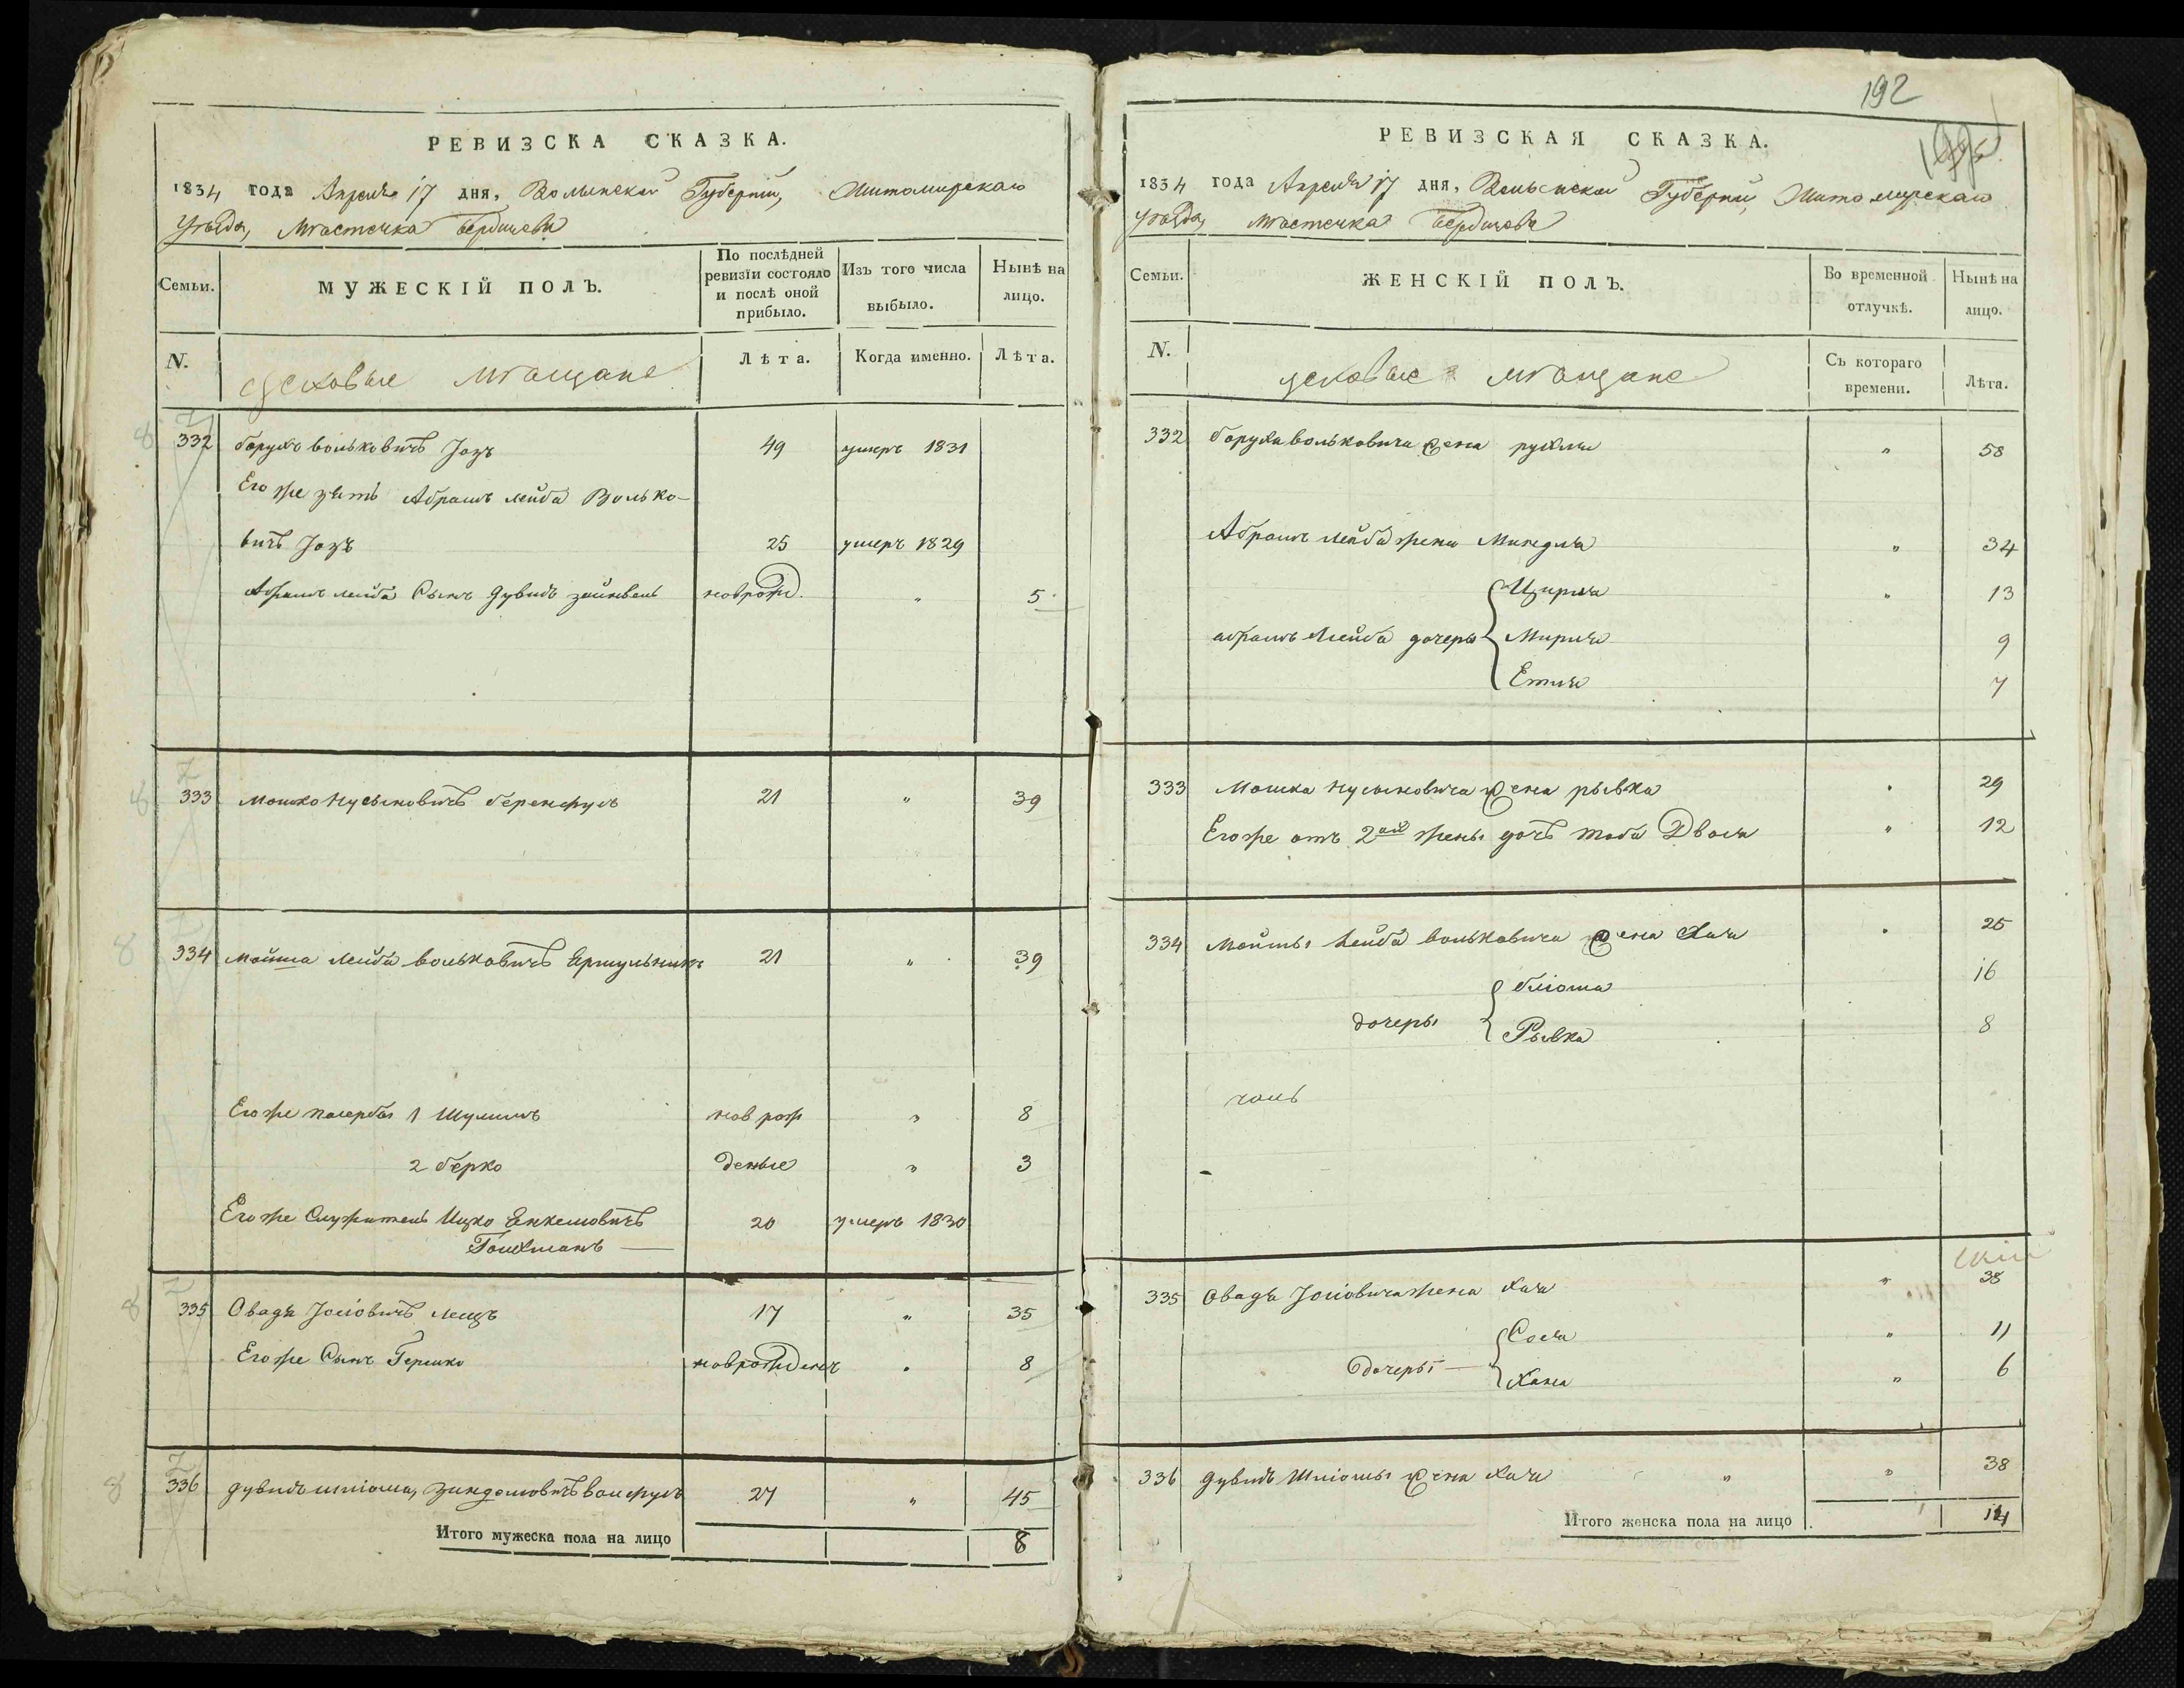 РЕВИЗСКА СКАЗКА.
1834 года Апреля 17 дня, Волынской Губернїи, Житомирскаго
Уѣзда, Мѣстечка Бердичева
Семьи.
МУЖЕСКІЙ ПОЛЪ.
По послѣдней ревизїи состояло и послѣ оной прибыло.
Изъ того числа выбыло.
Нынѣ на лицо.
N.
цеховые мѣщане
Лѣта.
Когда именно.
Лѣта.
332 борухъ вольковичъ 49 умеръ 1831
Его же зять Абрамъ лейба Волько-
вичъ 25 умеръ 1829
Абрамъ лейба Сынъ дувидъ зейнвель новрожд. " 5
333 Мошко Нусыновичъ 21 " 39
334 Мойша лейба вольковичъ Ярмульникъ 21 " 39
Его же 1 Шулимъ новрож " 8
2 берко денные " 3
Его же Служитель Ицко Енкелювичъ 20 умеръ 1830
Гойхманъ
335 Овадя Іосіовичъ 17 " 35
Его же Сынъ Гершко новрожденъ " 8
336 дувидъ шліома, 27 " 45
Итого мужеска пола на лицо 8
192
РЕВИЗСКАЯ СКАЗКА.
1834 года Апреля 17 дня, Волынской Губернїи, Житомирскаго
Уѣзда, мѣстечка Бердичева
Семьи.
ЖЕНСКІЙ ПОЛЪ.
Во временной отлучкѣ.
Нынѣ на лицо.
N.
цеховые мѣщане
Съ котораго времени.
Лѣта.
332 боруха вольковича жена рухля " 58
Абрамъ лейба жена Миндля " 34
Цирля " 13
абрамъ лейба дочеры Мирля 9
Етля 7
333 Мошка нусыновича жена рывка " 29
Его же отъ 2ой жены дочь тоба Двося " 12
334 Мойшы лейба вольковича жена Хая " 25
бліома 16
дочеры Рывка 8
335 Овадя Іосіовича жена хая " 38
Сося " 11
дочеры Хана " 6
336 дувидъ Шліомы жена хая " " 38
Итого женска пола на лицо 14